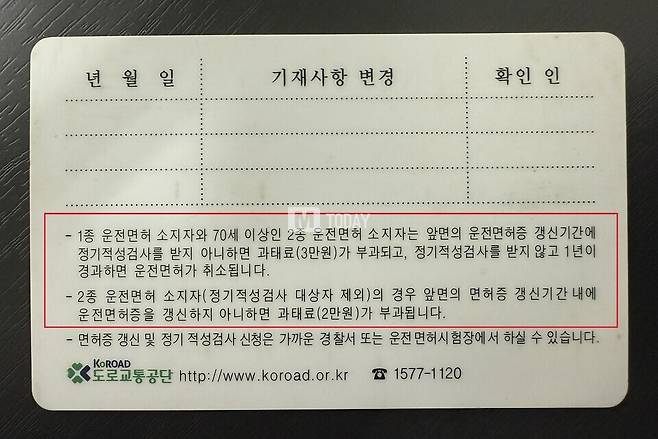 년 월 일 기재사항 변경 확인 인
M TODAY
- 1종 운전면허 소지자와 70세 이상인 2종 운전면허 소지자는 앞면의 운전면허증 갱신기간에
정기적성검사를 받지 아니하면 과태료(3만원)가 부과되고, 정기적성검사를 받지 않고 1년이
경과하면 운전면허가 취소됩니다.
- 2종 운전면허 소지자(정기적성검사 대상자 제외)의 경우 앞면의 면허증 갱신기간 내에
운전면허증을 갱신하지 아니하면 과태료(2만원)가 부과됩니다.
- 면허증 갱신 및 정기 적성검사 신청은 가까운 경찰서 또는 운전면허시험장에서 하실 수 있습니다.
KoROAD
도로교통공단 http://www.koroad.or.kr ☎ 1577-1120